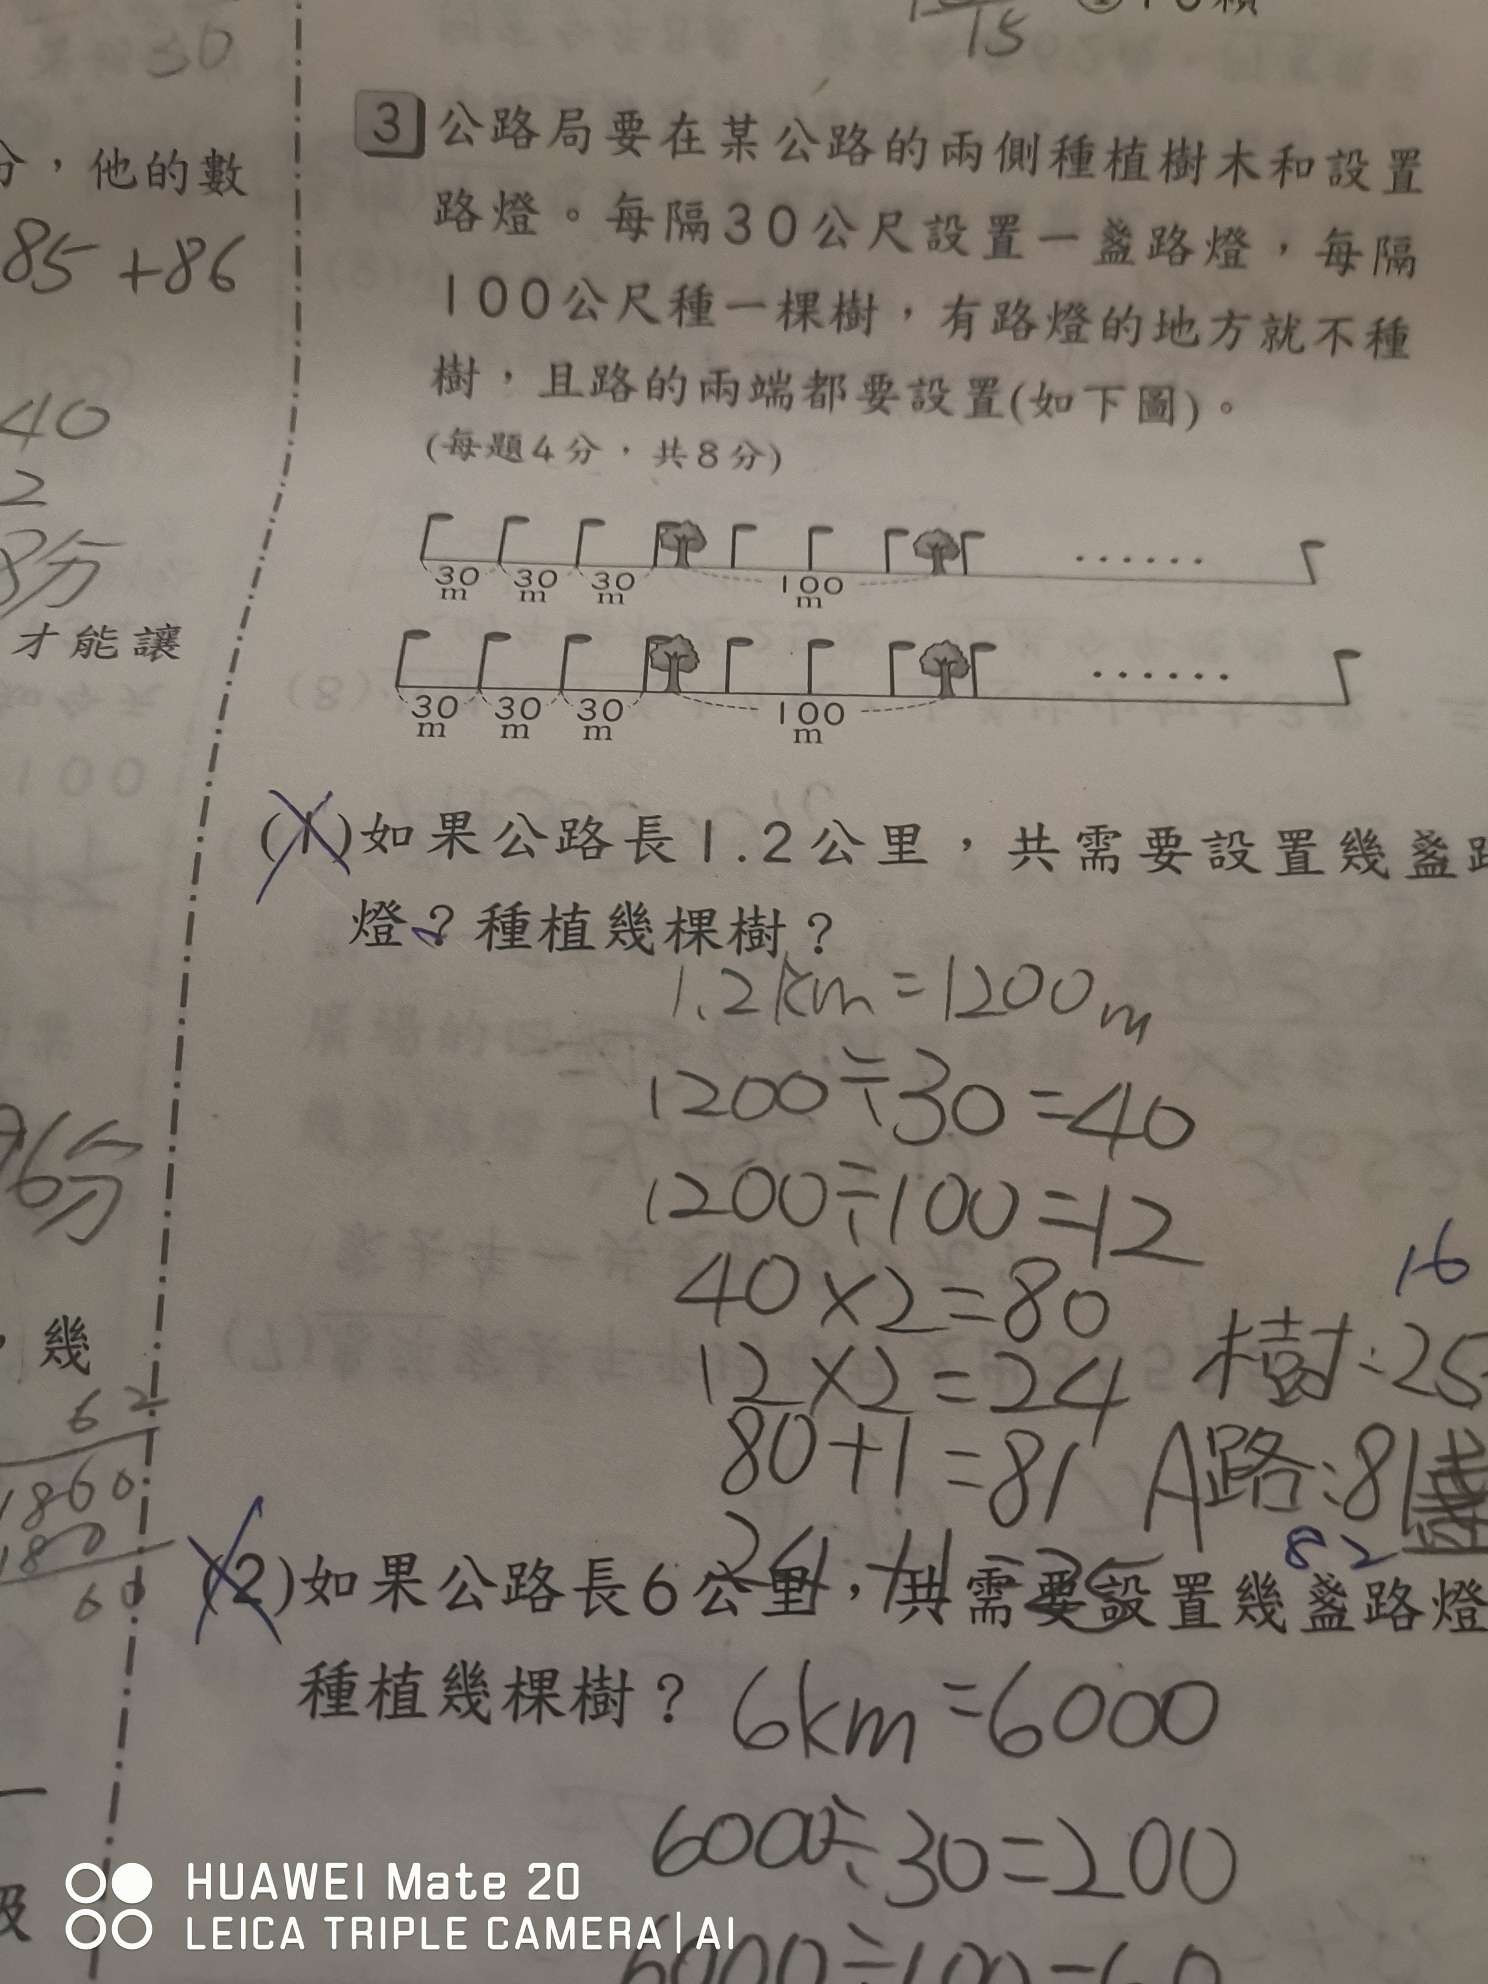 30
15
分，他的數
85+86
40
2
8分
才能讓
96分
，幾
62
1860
180
60
3 公路局要在某公路的兩側種植樹木和設置
路燈。每隔30公尺設置一盞路燈，每隔
100公尺種一棵樹，有路燈的地方就不種
樹，且路的兩端都要設置(如下圖)。
(每題4分，共8分)
30 m 30 m 30 m 100 m ……
30 m 30 m 30 m 100 m ……
(1)如果公路長1.2公里，共需要設置幾盞路
燈？種植幾棵樹？
1.2km=1200m
1200÷30=40
1200÷100=12
40×2=80
16
12×2=24 樹:25
80+1=81 A路:81
82
24+1=25
(2)如果公路長6公里，共需要設置幾盞路燈
種植幾棵樹？ 6km=6000
6000÷30=200
6000÷100=60
HUAWEI Mate 20
LEICA TRIPLE CAMERA | AI